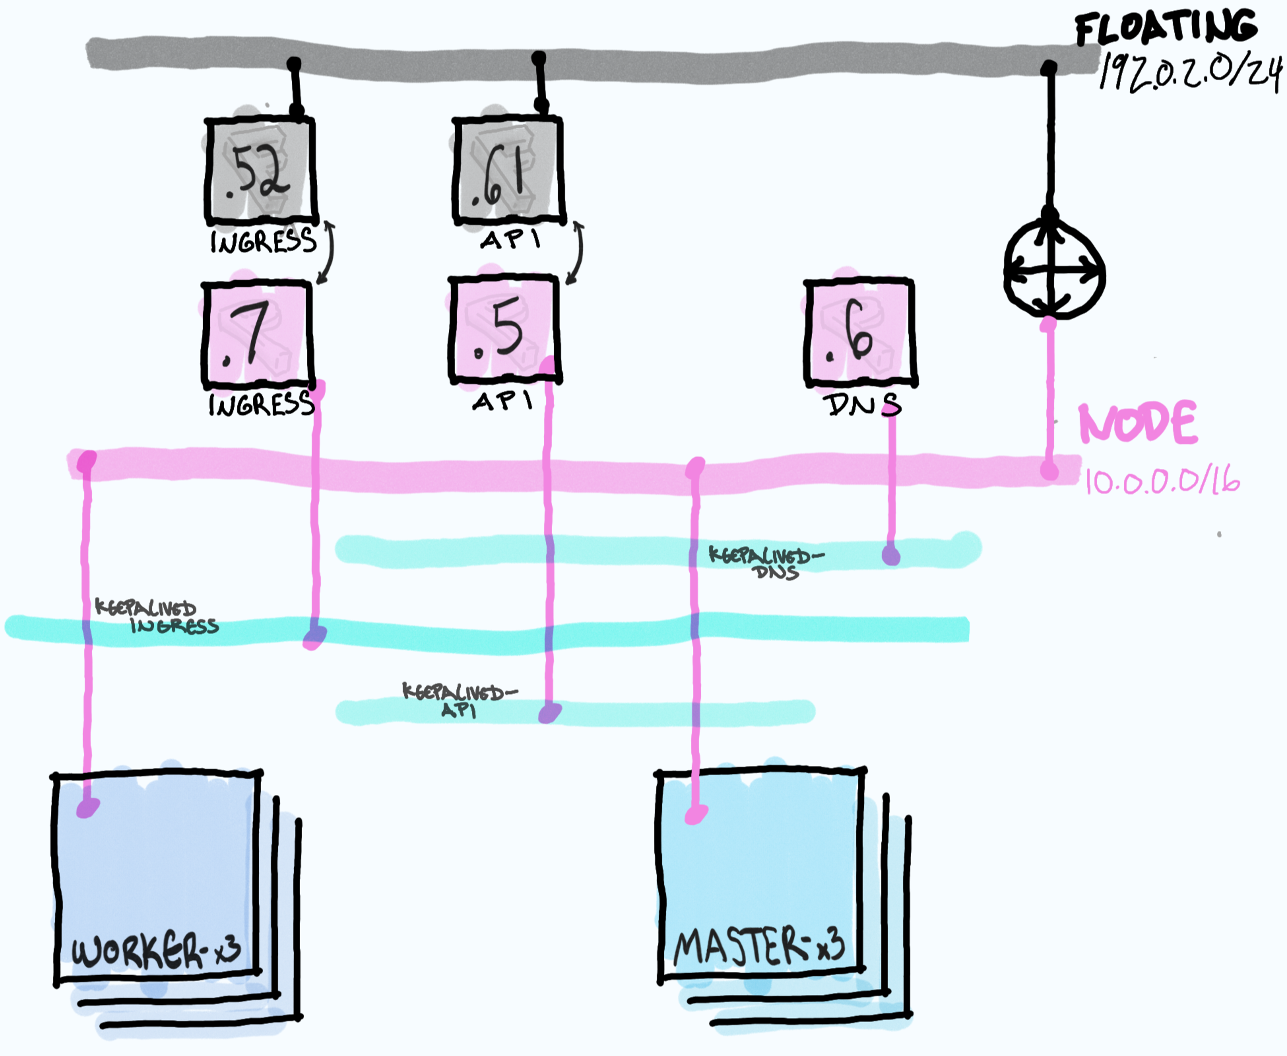 FLOATING
192.0.2.0/24
.52
.61
INGRESS
API
.7
.5
.6
INGRESS
API
DNS
NODE
10.0.0.0/16
KEEPALIVED-
DNS
KEEPALIVED
INGRESS
KEEPALIVED-
API
WORKER-x3
MASTER-x3